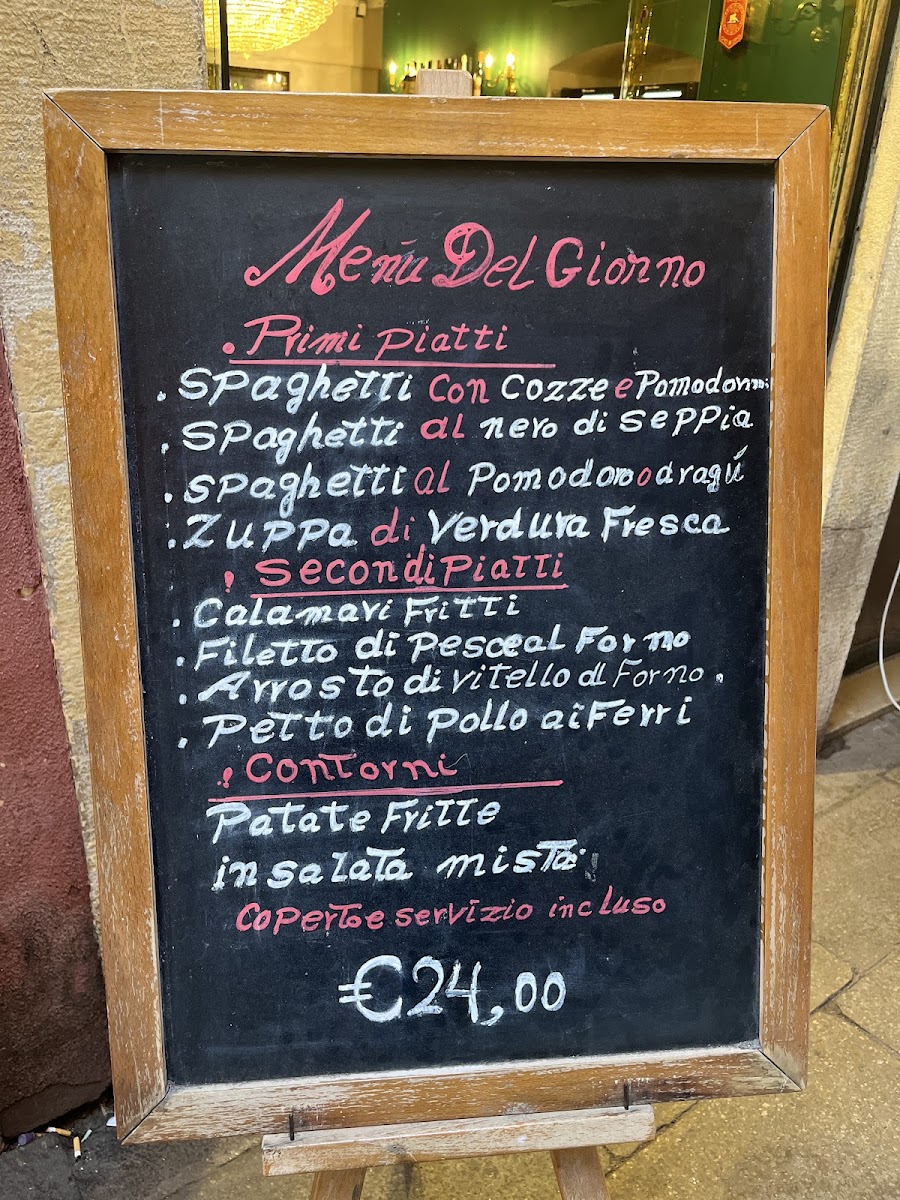 Menu Del Giorno
. Primi piatti
. Spaghetti con cozze e Pomodorini
. Spaghetti al nero di seppia
. Spaghetti al Pomodoro o al ragú
. Zuppa di Verdura Fresca
! Secondi Piatti
. Calamari Fritti
. Filetto di pesce al Forno
. Arrosto di vitello al Forno.
. Petto di pollo ai Ferri
! Contorni
Patate Fritte
insalata mista
Coperto e servizio incluso
€24,00